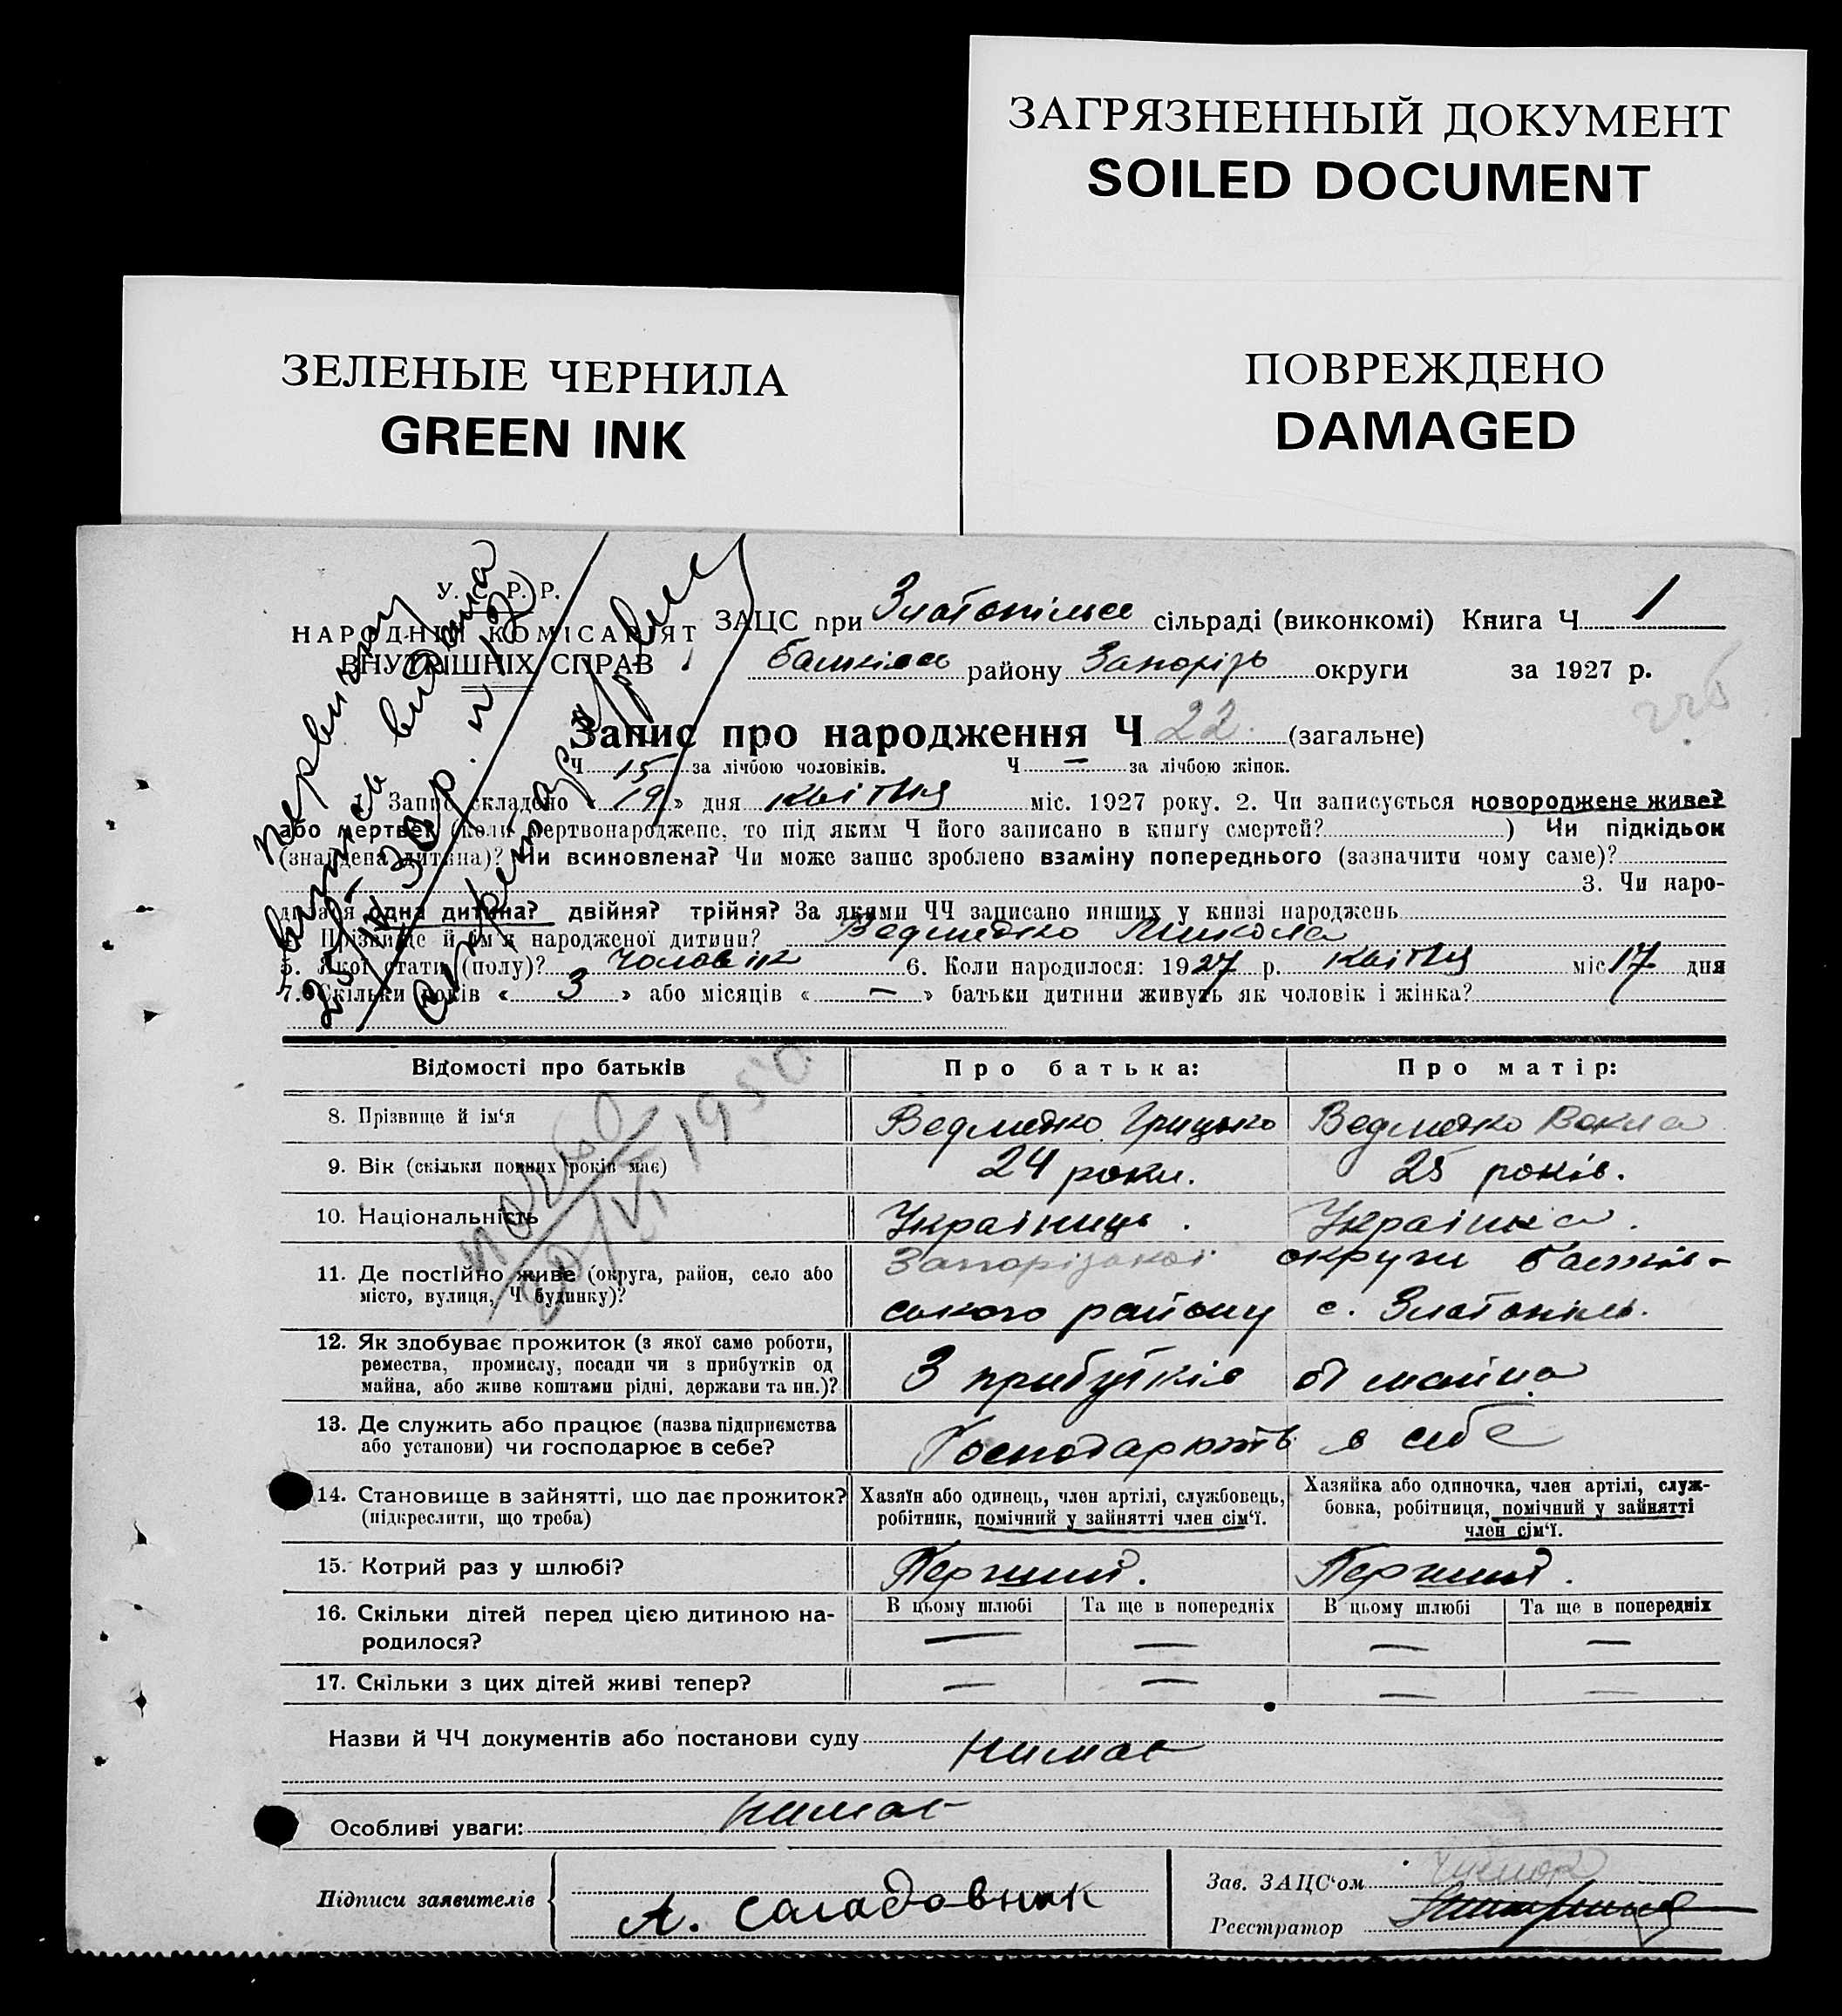 ЗАГРЯЗНЕННЫЙ ДОКУМЕНТ
SOILED DOCUMENT
ЗЕЛЕНЫЕ ЧЕРНИЛА
GREEN INK
ПОВРЕЖДЕНО
DAMAGED
У. С. Р. Р.
НАРОДНІЙ КОМІСАРІЯТ
ВНУТРІШНІХ СПРАВ
ЗАЦС при Златопільсь сільраді (виконкомі) Книга Ч 1
району Запорізь округи за 1927 р.
226
Запис про народження Ч 22 (загальне)
Ч 15 за лічбою чоловіків. Ч — за лічбою жінок.
1. Запис складено « 19 » дня квітня міс. 1927 року. 2. Чи записується новороджене живе?
або мертве? (коли мертвонароджене, то під яким Ч його записано в книгу смертей? ) Чи підкідьок
(знайдена дитина)? Чи всиновлена? Чи може запис зроблено взаміну попереднього (зазначити чому саме)?
3. Чи наро-
дилася одна дитина? двійня? трійня? За якими ЧЧ записано инших у книзі народжень
4. Прізвище й ім'я народженої дитини? Ведмедко Микола
5. Якої стати (полу)? Чоловік 6. Коли народилося: 1927 р. квітня міс 17 дня
7. Скільки років « 3 » або місяців « — » батьки дитини живуть як чоловік і жінка?
первинну
випись видана
Відомості про батьків Про батька: Про матір:
8. Прізвище й ім'я Ведмедко Грицько Ведмедко Векла
9. Вік (скільки повних років має) 24 роки. 25 років.
10. Національність Українець. Українка.
11. Де постійно живе (округа, район, село або Запорізької округи Балків-
місто, вулиця, Ч будинку)? ського району с. Златопіль.
12. Як здобуває прожиток (з якої саме роботи,
ремества, промислу, посади чи з прибутків од З прибутків от майна
майна, або живе коштами рідні, держави та ин.)?
13. Де служить або працює (назва підприємства
або установи) чи господарює в себе? Господарюють в себе
14. Становище в зайнятті, що дає прожиток? (підкреслити, що треба)
Хазяїн або одинець, член артілі, службовець,
робітник, помічний у зайнятті член сім'ї.
Хазяйка або одиночка, член артілі, служ-
бовка, робітниця, помічний у зайнятті
член сім'ї.
15. Котрий раз у шлюбі? Перший. Перший.
16. Скільки дітей перед цією дитиною на- В цьому шлюбі Та ще в попередніх В цьому шлюбі Та ще в попередніх
родилося? — — — —
17. Скільки з цих дітей живі тепер? — — — —
Назви й ЧЧ документів або постанови суду нимає
Особливі уваги: нимає
Підписи заявителів
А. Сагадовник
Зав. ЗАЦС'ом
Реєстратор